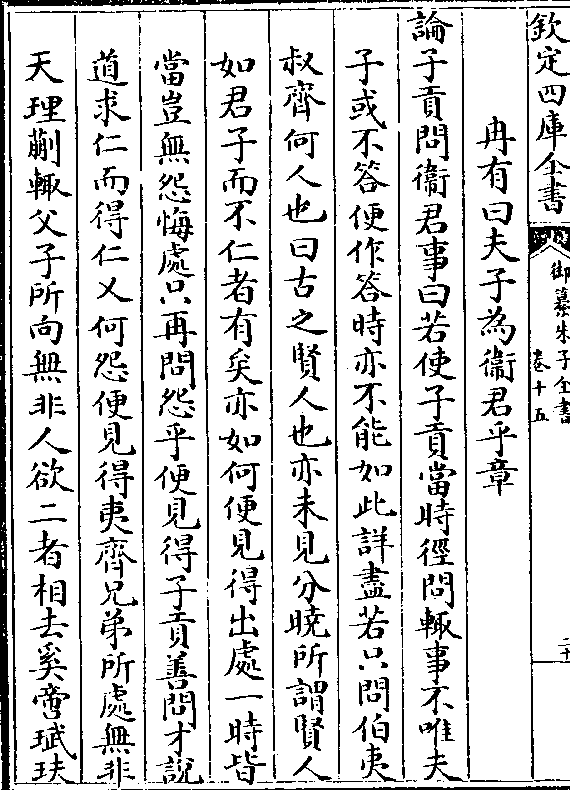 欽定四庫全書
御纂朱子全書
卷十五
二十
冉有曰夫子為衞君乎章
論子貢問衞君事曰若使子貢當時徑問輒事不唯夫
子或不答便作答時亦不能如此詳盡若只問伯夷
叔齊何人也曰古之賢人也亦未見分曉所謂賢人
如君子而不仁者有矣亦如何便見得出處一時皆
當豈無怨悔處只再問怨乎便見得子貢善問才說
道求仁而得仁又何怨便見得夷齊兄弟所處無非
天理蒯輒父子所向無非人欲二者相去奚啻珷玞